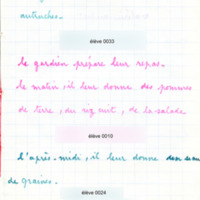 autruches.
élève 0033
le gardien prépare leur repas.
le matin, il leur donne des pommes
de terre, du riz cuit, de la salade
élève 0010
l'après-midi, il leur donne
de graines.
élève 0024